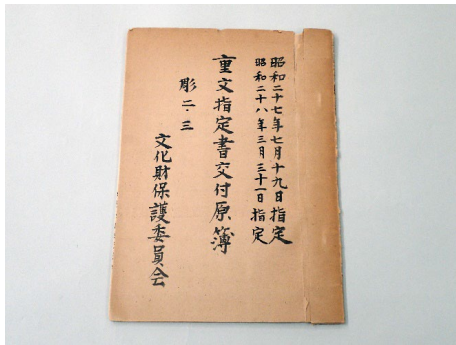 昭和二十七年七月十九日指定
昭和二十八年三月三十一日指定
重文指定書交付原簿
彫二・三
文化財保護委員会